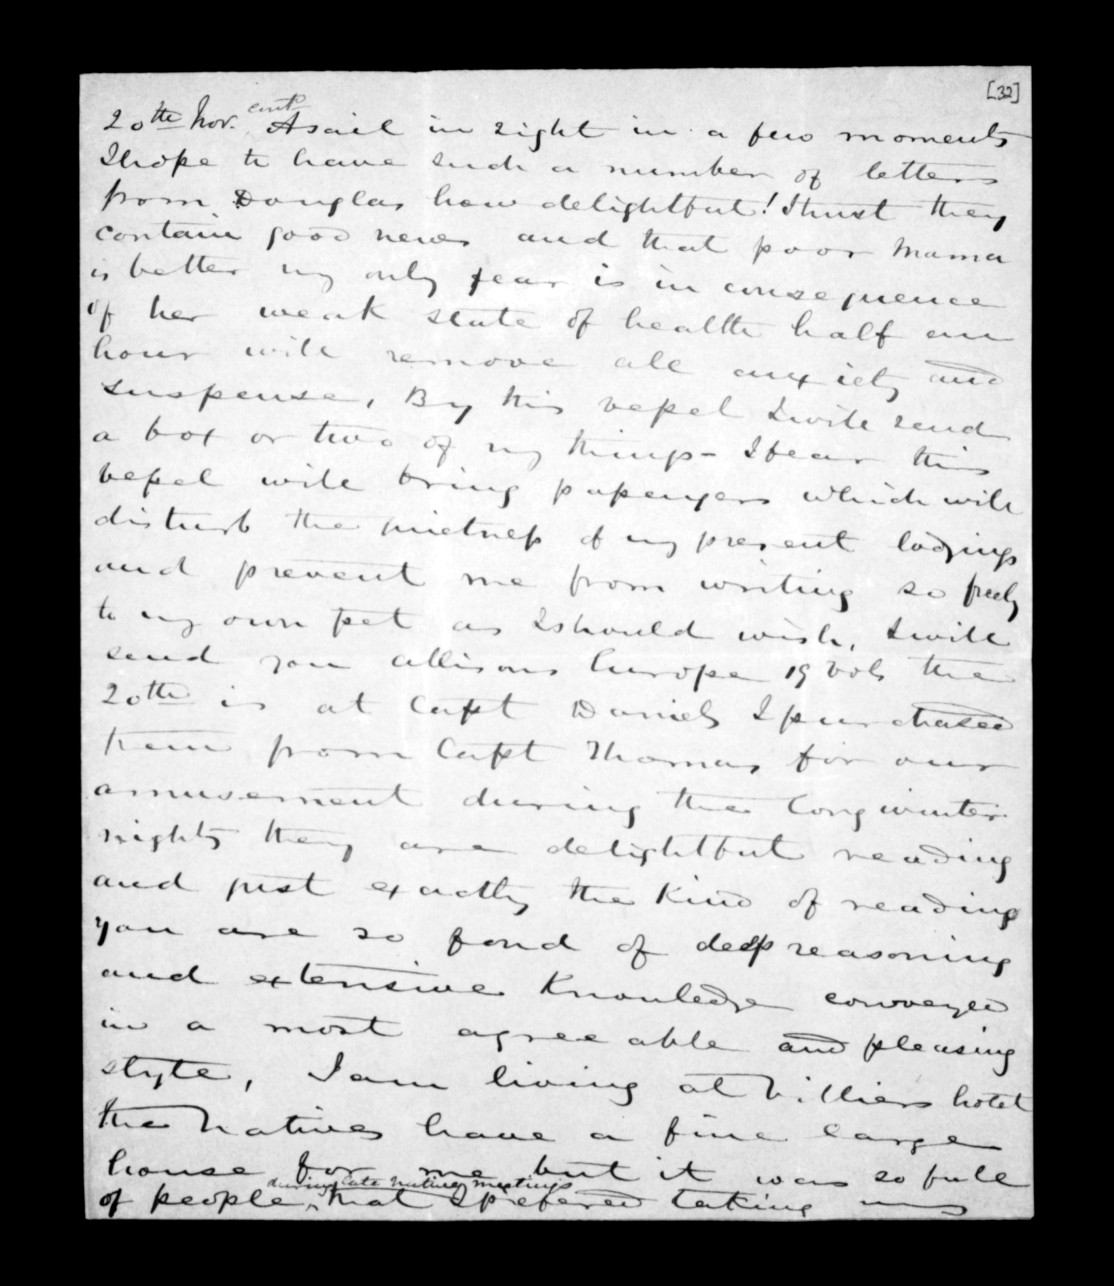 [32]
20th Nov. contd A sail in sight in a few moments
I hope to have such a number of letters
from Douglas how delightful! I trust they
contain good news and that poor Mama
is better my only fear is in consequence
of her weak state of health half an
hour will remove all anxiety and
suspense, By this vessel I will send
a box or two of my things - I fear this
vessel will bring passengers which will
disturb the quietness of my present lodgings
and prevent me from writing so freely
to my own pet as I should wish, I will
send you allisons Europe 19 vols the
20th is at Capt Daniels I purchased
them from Capt Thomas for our
amusement during the long winter
nights they are delightful reading
and just exactly the kind of reading
you are so fond of deep reasoning
and extensive knowledge conveyed
in a most agreeable and pleasing
style, I am living at Villiers hotel
the Natives have a fine large
house for me but it was so full
during late native meetings
of people, that I prefered taking my